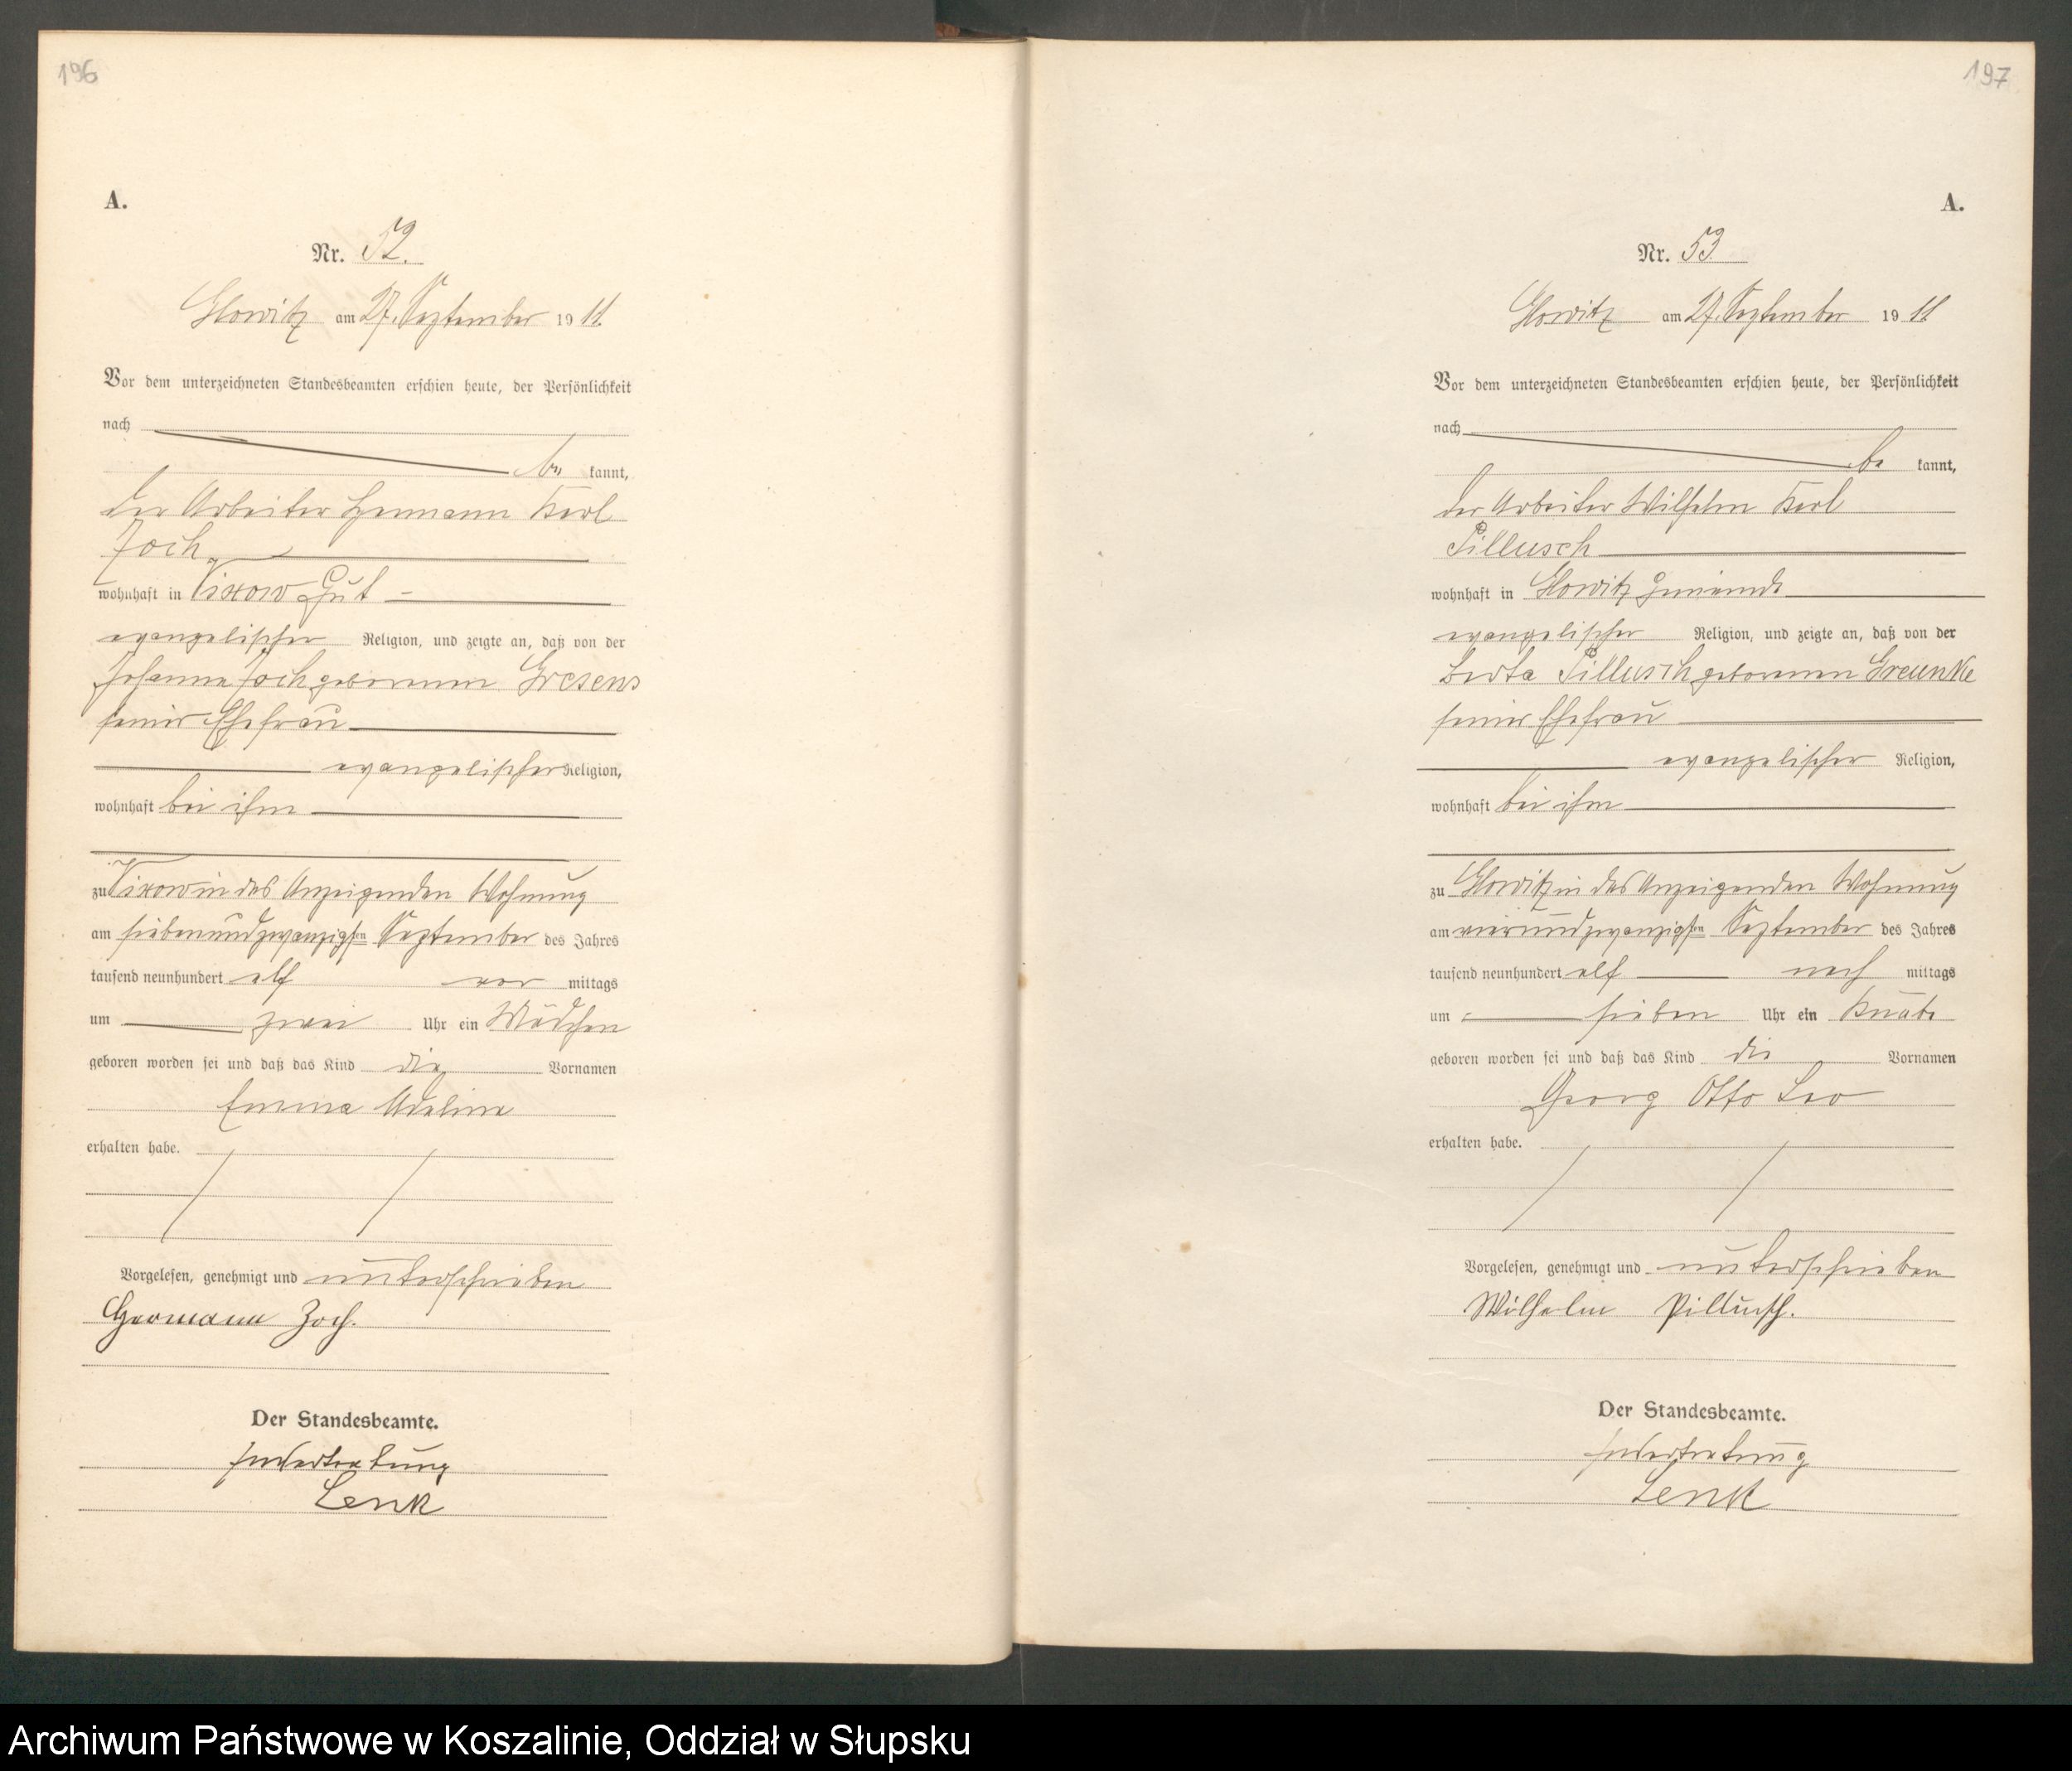 196
A.
Nr. 52.
Glowitz am 27. September 1911.
Vor dem unterzeichneten Standesbeamten erschien heute, der Persönlichkeit
nach
be kannt,
der Arbeiter Hermann Karl
Zoch
wohnhaft in Vixow Gut
evangelischer Religion, und zeigte an, daß von der
Johanna Zoch geborenen Gresens
seiner Ehefrau
evangelischer Religion,
wohnhaft bei ihm
zu Vixow in des Anzeigenden Wohnung
am siebenundzwanzigsten September des Jahres
tausend neunhundert elf vor mittags
um zwei Uhr ein Mädchen
geboren worden sei und daß das Kind die Vornamen
Emma Adeline
erhalten habe.
Vorgelesen, genehmigt und unterschrieben
Hermann Zoch.
Der Standesbeamte.
In Vertretung
Lenk
197
A.
Nr. 53
Glowitz am 27. September 1911
Vor dem unterzeichneten Standesbeamten erschien heute, der Persönlichkeit
nach
be kannt,
der Arbeiter Wilhelm Karl
Pillusch
wohnhaft in Glowitz Gemeinde
evangelischer Religion, und zeigte an, daß von der
Berta Pillusch geborenen Greunke
seiner Ehefrau
evangelischer Religion,
wohnhaft bei ihm
zu Glowitz in des Anzeigenden Wohnung
am vierundzwanzigsten September des Jahres
tausend neunhundert elf nach mittags
um sieben Uhr ein Knabe
geboren worden sei und daß das Kind die Vornamen
Georg Otto Leo
erhalten habe.
Vorgelesen, genehmigt und unterschrieben
Wilhelm Pillusch.
Der Standesbeamte.
In Vertretung
Lenk
Archiwum Państwowe w Koszalinie, Oddział w Słupsku